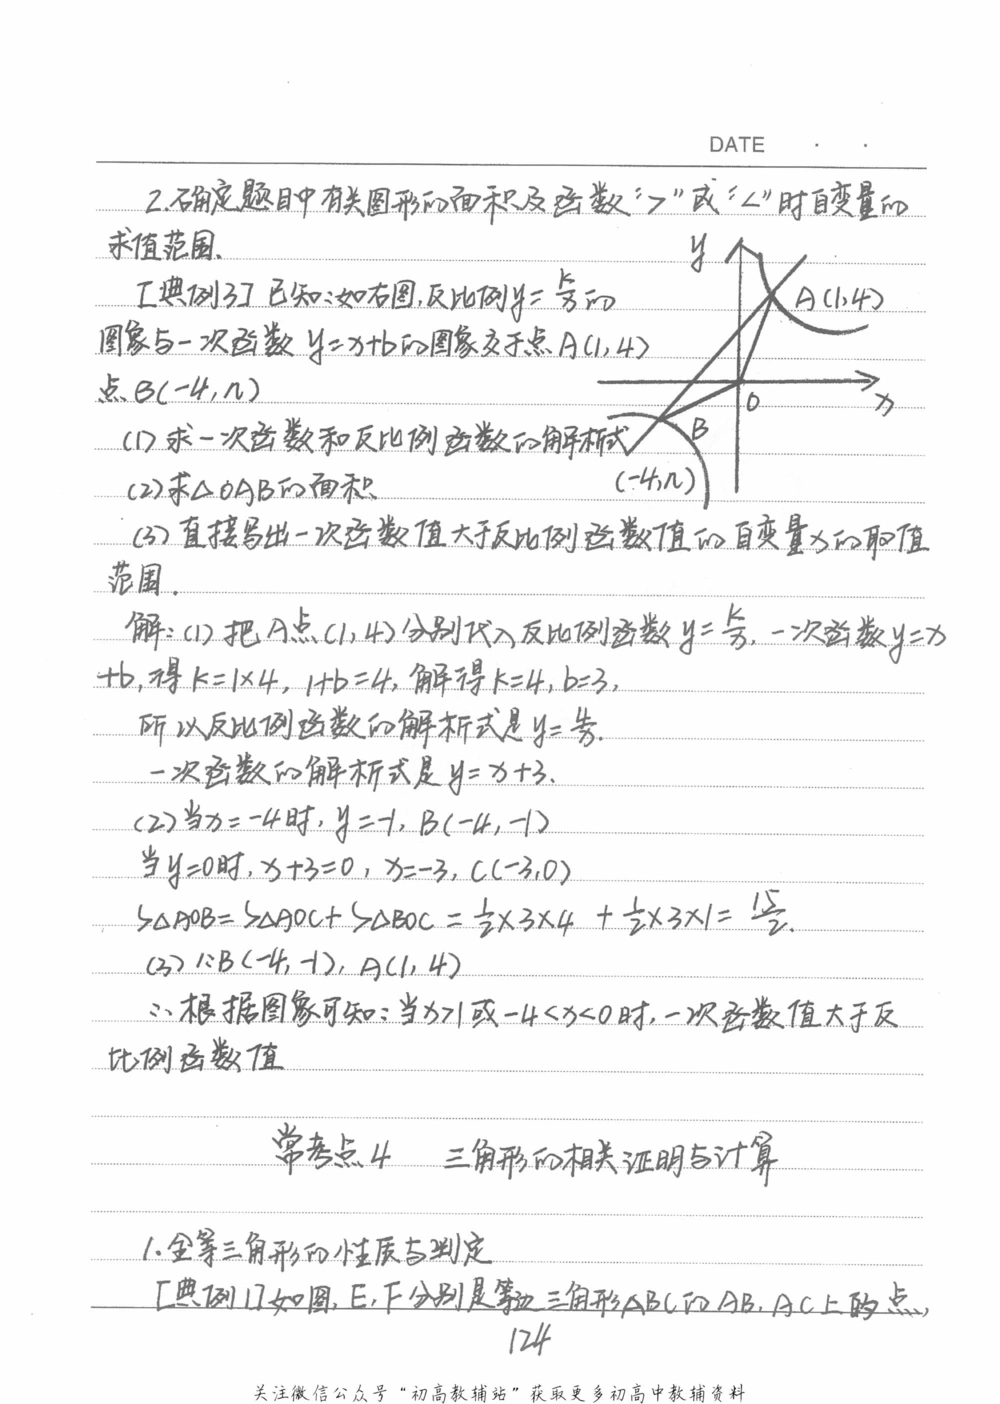 DATE · ·
2.确定题目中有关图形的面积及函数“>”或“<”时自变量的
求值范围.
[典例3]已知:如右图,反比例y=k/x的
图象与一次函数y=x+b的图象交于点A(1,4)
点B(-4,n)
(1)求一次函数和反比例函数的解析式
(2)求△OAB的面积
(3)直接写出一次函数值大于反比例函数值的自变量x的取值
范围.
y
A(1,4)
O
x
B
(-4,n)
解:(1)把A点(1,4)分别代入反比例函数y=k/x,一次函数y=x
+b,得k=1×4,1+b=4,解得k=4,b=3,
所以反比例函数的解析式是y=4/x.
一次函数的解析式是y=x+3.
(2)当x=-4时,y=-1,B(-4,-1)
当y=0时,x+3=0,x=-3,C(-3,0)
S△AOB=S△AOC+S△BOC=1/2×3×4+1/2×3×1=15/2.
(3)∵B(-4,-1),A(1,4)
∴根据图象可知:当x>1或-4<x<0时,一次函数值大于反
比例函数值
常考点4 三角形的相关证明与计算
1.全等三角形的性质与判定
[典例1]如图,E,F分别是等边三角形△ABC的AB,AC上的点,
124
关注微信公众号“初高教辅站”获取更多初高中教辅资料